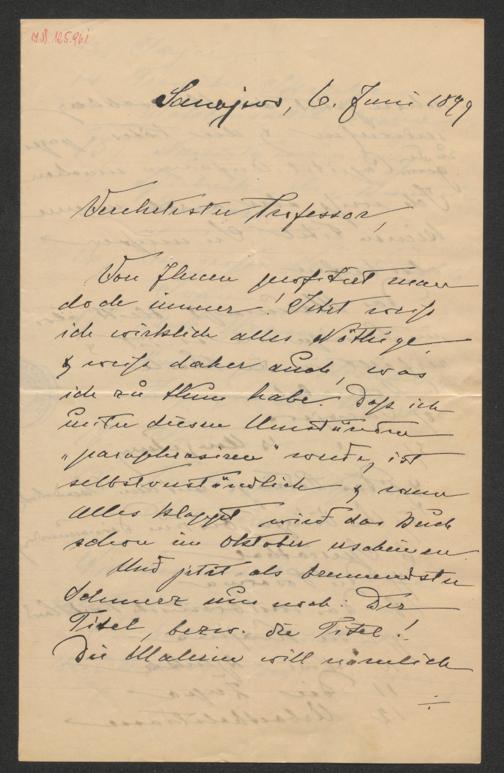 I.N. 125.961
Sarajevo, 6. Juni 1899
Verehrtester Professor,
Von Ihnen profitirt man
doch immer! Jetzt weiß
ich wirklich alles Nöthige
& weiß daher auch, was
ich zu thun habe. Daß ich
unter diesen Umständen
„paraphrasiren“ werde, ist
selbstverständlich & wenn
Alles klappt wird das Buch
schon im Oktober erscheinen.
Und jetzt als brennendster
Schmerz nur noch: Der
Titel, bezw. die Titel!
Die will nämlich